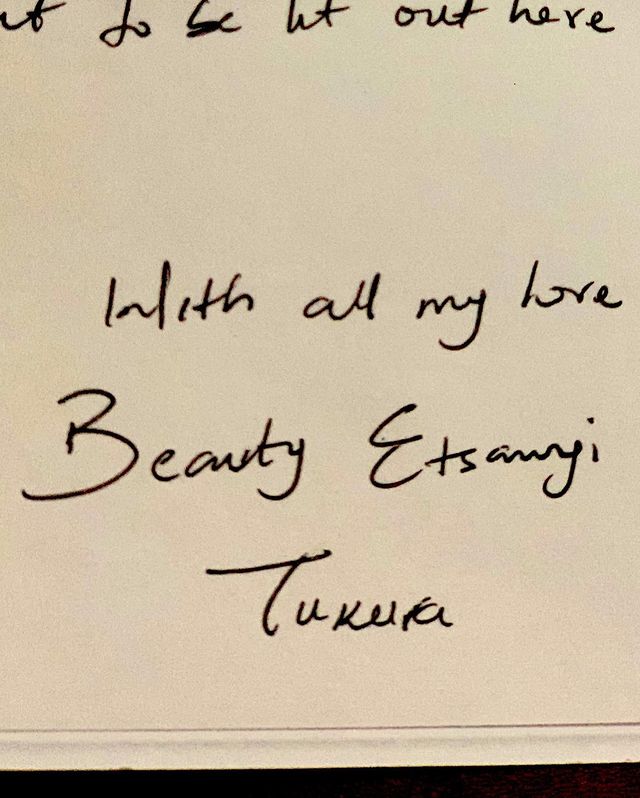 to be lit out here
With all my love
Beauty Etsanyi
Tukura